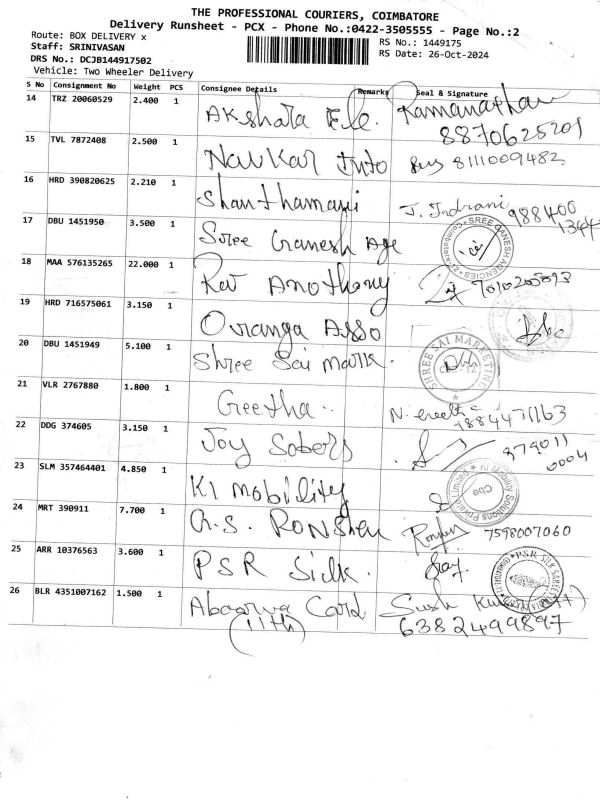 THE PROFESSIONAL COURIERS, COIMBATORE
Delivery Runsheet - PCX - Phone No.:0422-3505555 - Page No.:2
Route: BOX DELIVERY x
RS No.: 1449175
Staff: SRINIVASAN
RS Date: 26-Oct-2024
DRS No.: DCJB144917502
Vehicle: Two Wheeler Delivery
S No Consignment No Weight PCS Consignee Details Remarks Seal & Signature
14 TRZ 20060529 2.400 1 Akshara Ele. Ramanathan
8870625201
15 TVL 7872408 2.500 1 Navkar Into 8111009482
16 HRD 390820625 2.210 1 Shanthamani J. Indrani 988400
1344
17 DBU 1451950 3.500 1 Sree Ganesh Age SREE GANESH AGENCIES
18 MAA 576135265 22.000 1 Rev Anothony
19 HRD 716575061 3.150 1 Ovranga Asso
20 DBU 1451949 5.100 1 Shree Sai Mark. SHREE SAI MARKETING
21 VLR 2767880 1.800 1 Geetha
22 DDG 374605 3.150 1 Joy Sobers 879011
0004
23 SLM 357464401 4.850 1 KI Mobility KI Mobility Solutions Private Limited Cbe
24 MRT 390911 7.700 1 G.S. Ronshen 7598007060
25 ARR 10376563 3.600 1 PSR Silk. P.S.R. SILK SAREES
26 BLR 4351007162 1.500 1 Aboorva Card
(11th) 6382499897